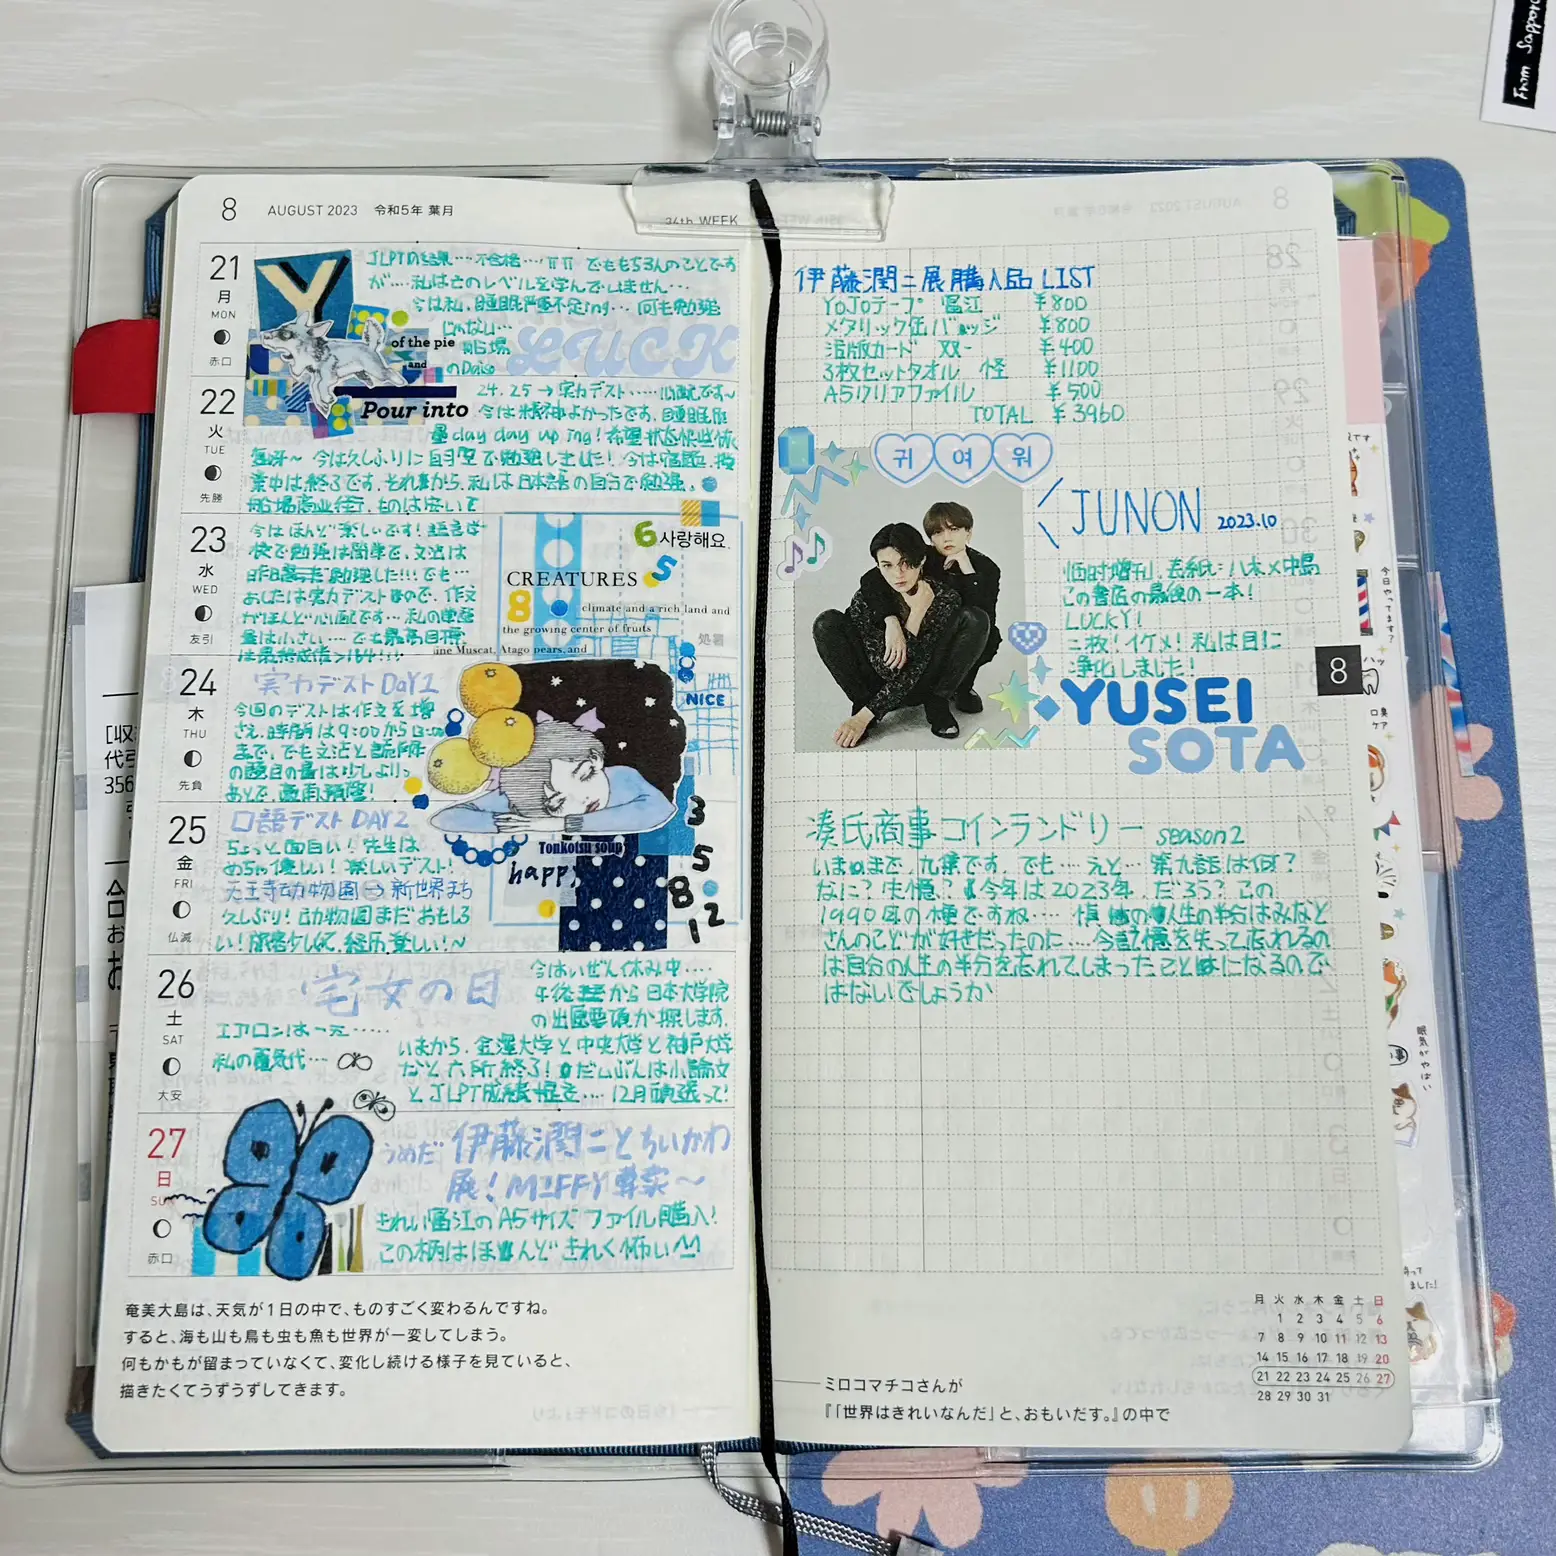 8 AUGUST 2023 令和5年 葉月
34th WEEK
21
月
MON
赤口
JLPTの結果…不合格… TT でももちろんのことです
が…私はこのレベルを学んでいません…
今は私、睡眠厳重不足ing… 何も勉強
じゃない…
船場
のDaiso
LUCK
Y
of the pie
and
Pour into
22
火
TUE
先勝
24.25→実力テスト……心配です~
今は精神よかったです。睡眠質
量day day up ing!希望状态
今は久しぶりに自習室で勉強しました!今は宿題、授
業中は終るです。それから、私は日本語の自分で勉強。
船場商业街、ものは安いで
23
水
WED
友引
今はほんど楽しいです!
校で勉強は簡単で、文法は
昨日勉強した!!!でも…
あしたは実力テストなので、作文
がほんど心配です…私の単語
量は小さい…でも最高目標
は最終成績>164!!…
6
사랑해요.
5
CREATURES
8
climate and a rich land and
the growing center of fruits
ine Muscat, Atago pears, and
処暑
24
木
THU
先負
実力テスト DAY1
今回のテストは作文を増
さえ、時間は9:00から13:00
まで、でも文法と読解
の題目の量は少しより。
あとで、
NICE
25
金
FRI
仏滅
口語テスト DAY2
ちょっと面白い!先生は
めちゃ優しい!楽しいテスト!
天王寺动物園→新世界まち
久しぶり!动物園まだおもしろ
い!旅客少して、経历楽しい!~
Tonkotsu soup
happy
3
5
8
12
26
土
SAT
大安
宅女の日
今はいぜん休み中…
午後から日本大学院
の出願要項か探します。
エアコンはーえ……
私の電気代…
いまから、金澤大学と中央大学と神戸大学
など六所終る!だいぶんは小論文
と JLPT成績… 12月頑張って!
27
日
SUN
赤口
うめだ 伊藤潤二とちいかわ
展!MIFFY専家~
きれい富江のA5サイズファイル購入!
この柄はほんどきれく怖い
奄美大島は、天気が1日の中で、ものすごく変わるんですね。
すると、海も山も鳥も虫も魚も世界が一変してしまう。
何もかもが留まっていなくて、変化し続ける様子を見ていると、
描きたくてうずうずしてきます。
伊藤潤二展購入品 LIST
YOJOテープ 富江 ¥800
メタリック缶バッジ ¥800
活版カード XX- ¥400
3枚セットタオル 怪 ¥1100
A5クリアファイル ¥500
TOTAL ¥3960
귀 여 워
JUNON 2023.10
恒时増刊 表紙:八木×中島
この書店の最後の一本!
LUCKY!
二枚!イケメ!私は目に
浄化しました!
YUSEI
SOTA
8
湊氏商事コインランドリー season2
いままで、九集です。でも…えと…第九話は何?
なに?失憶?『今年は2023年、だろう?この
1990年の梗ですね…
さんのことが好きだったのに…今記憶を失って忘れるの
は自分の人生の半分を忘れてしまったことになるので
はないでしょうか
月 火 水 木 金 土 日
1 2 3 4 5 6
7 8 9 10 11 12 13
14 15 16 17 18 19 20
21 22 23 24 25 26 27
28 29 30 31
ミロコマチコさんが
『「世界はきれいなんだ」と、おもいだす。』の中で
From Sapporo